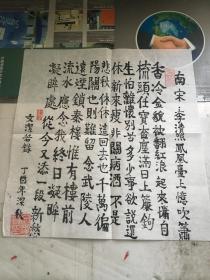 南宋李清照鳳凰臺上憶吹簫
香冷金猊被翻紅浪起來慵自
梳頭任寶奩塵滿日上簾鉤
生怕離懷別苦多少事欲說還
休新來瘦非關病酒不是
悲秋休休這回去也千萬徧
陽關也則難留念武陵人
遠煙鎖秦樓惟有樓前
流水應念我終日凝眸
凝眸處從今又添一段新愁
丁酉年深秋